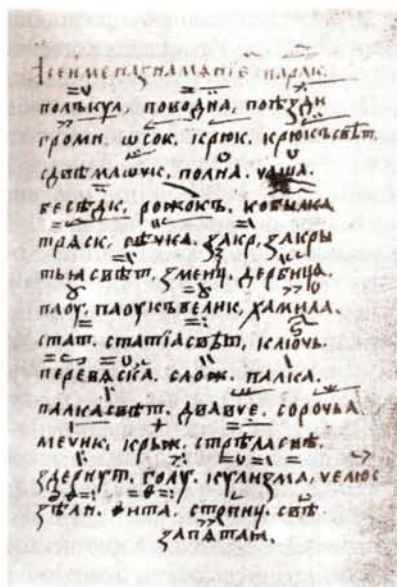 ІСЕИМЕНАЗНАМѦНІЕ ПАРАК.
полъкул, поводна, поѣзди
громн. ѡсок. крюк. крюкъсвѣт.
сдвѣмаѡчк. полна. чаша.
бесѣдк, рожокъ. кобылка
трѧск. свѣчка. закр, закры
тьасвѣт, змеиц. дербица.
паоу. паоукъвелик, хамила.
стат. статіасвѣт, ключь.
перевѧска. слож. палка.
палкасвѣт. двавче. сорочьа
мечик, крыж. стрѣласвѣ.
здернут. голу. кулизма, челюс
ѳита. свѣ
запѧтаи.